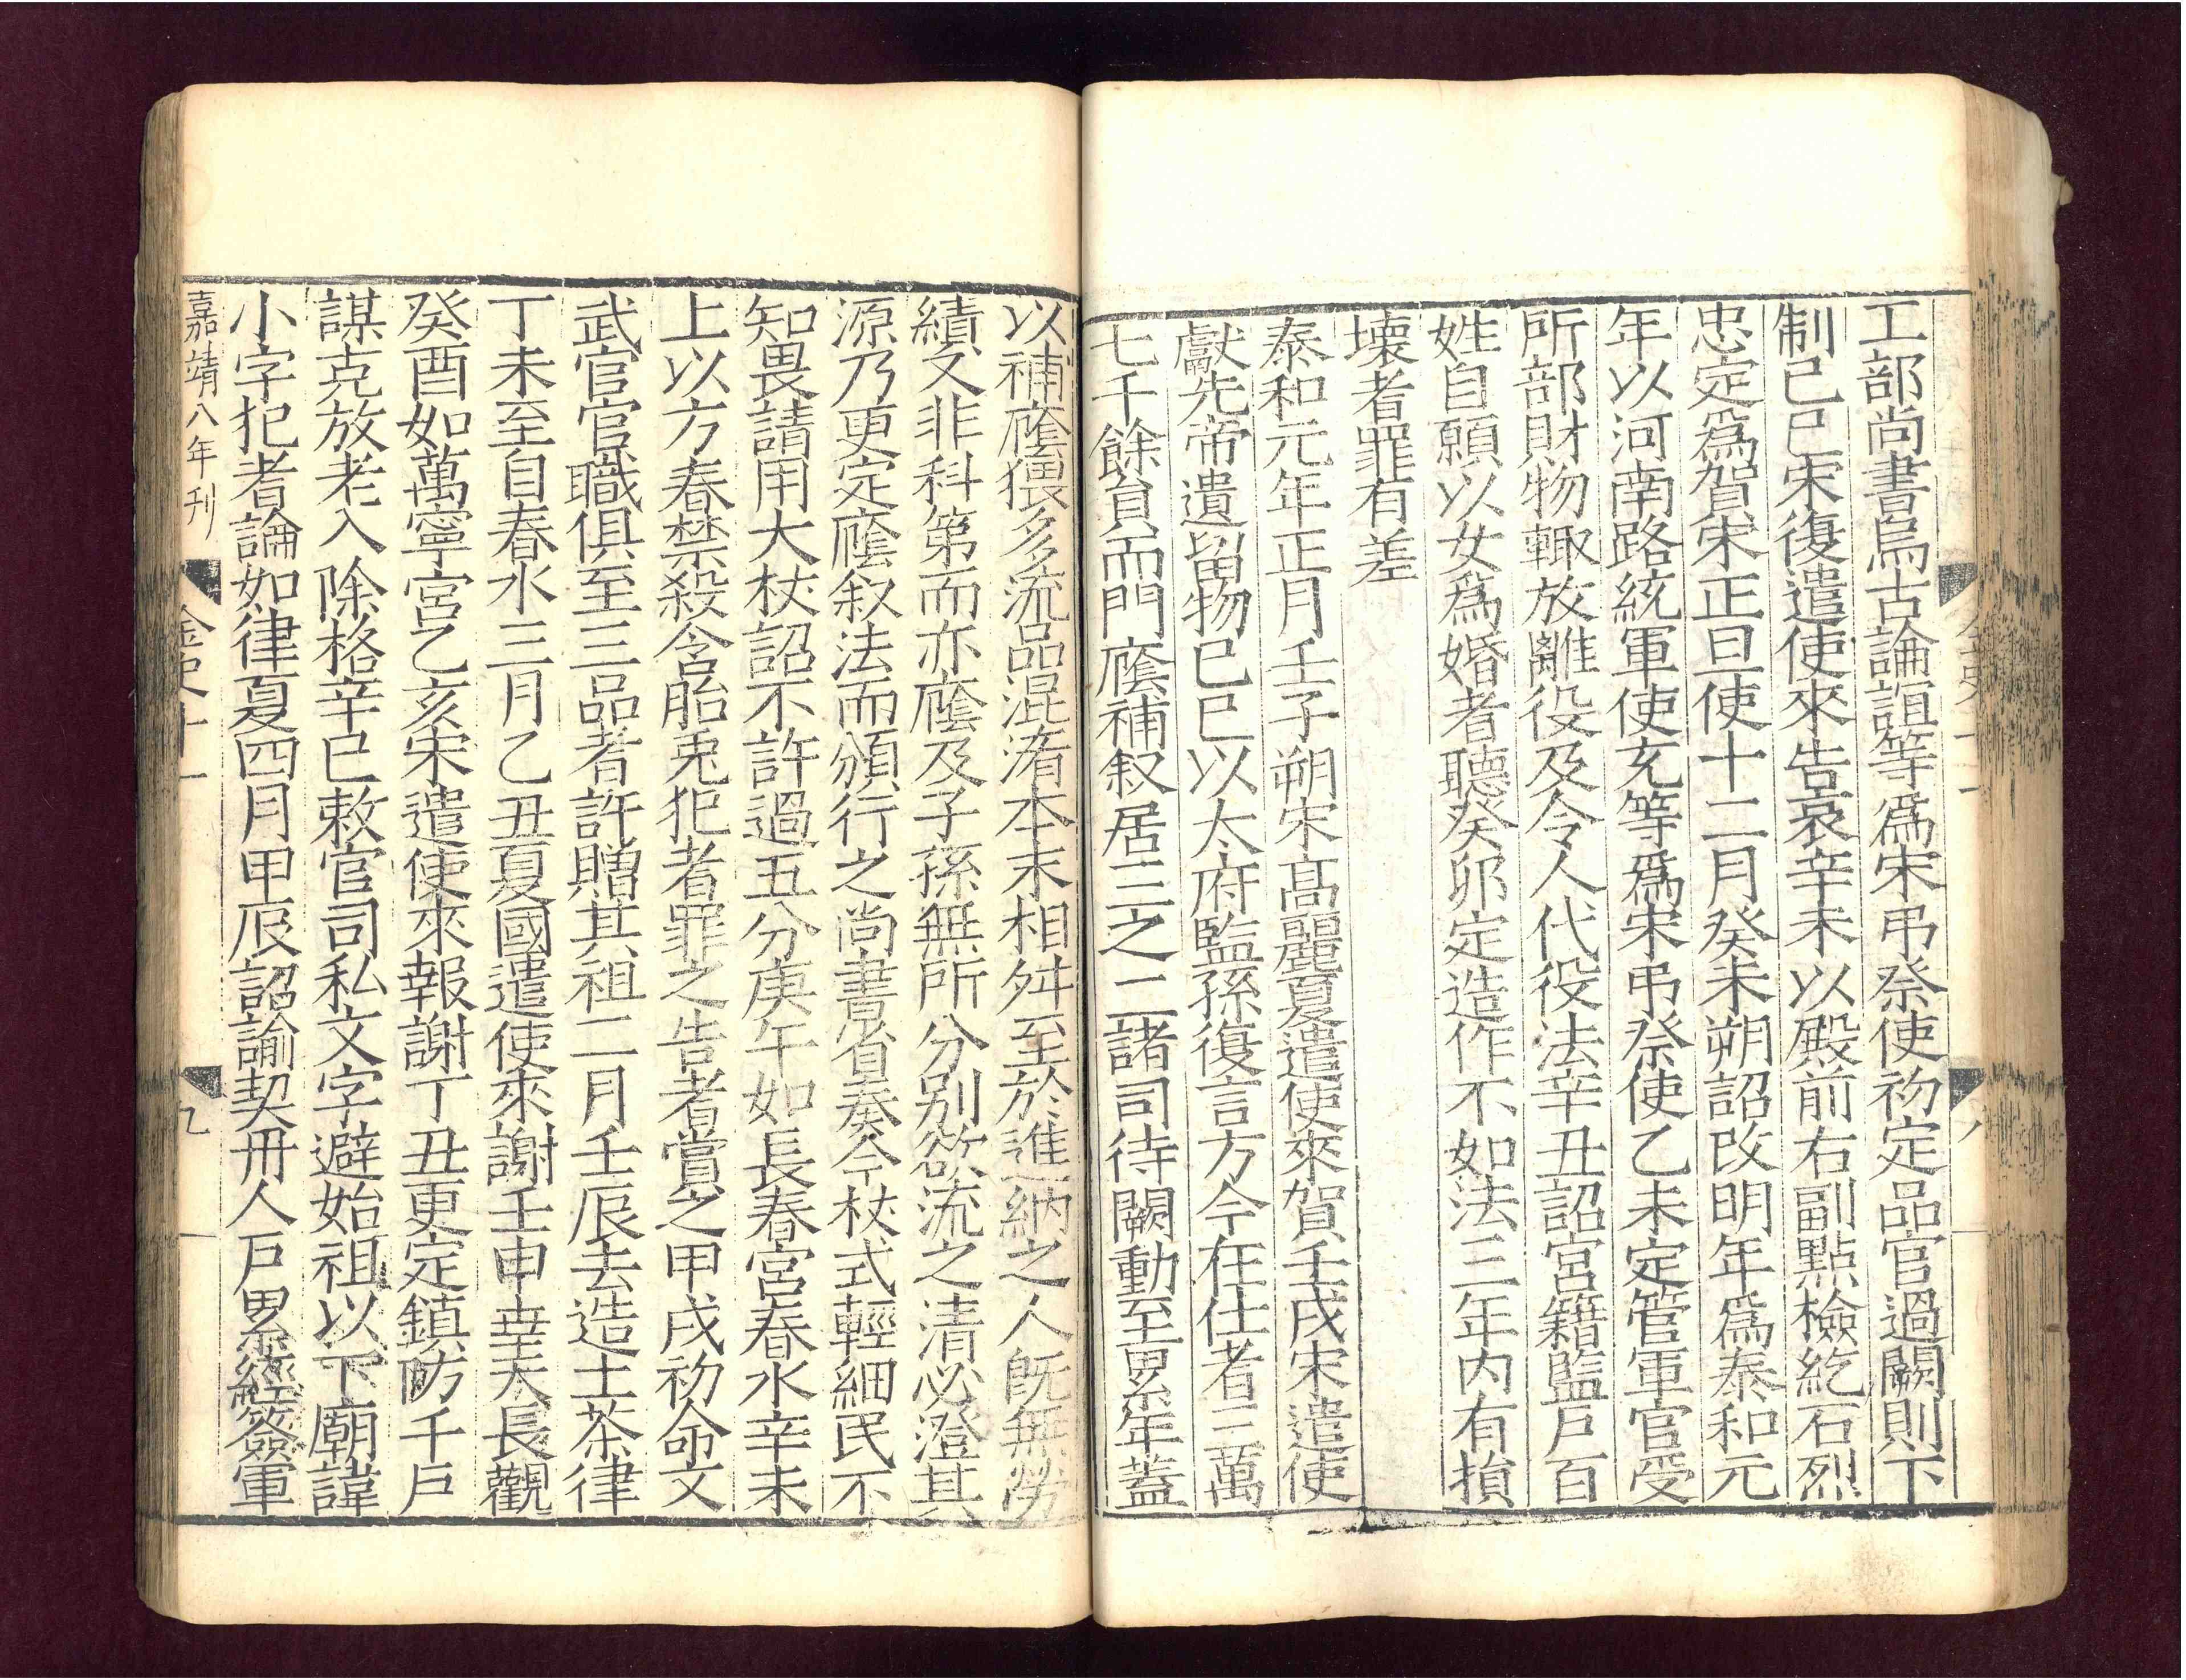 工部尚書烏古論誼等爲宋弔祭使初定品官過闕則下
制己巳宋復遣使來告哀辛未以殿前右副點檢紇石烈
忠定爲賀宋正旦使十二月癸未朔詔改明年爲泰和元
年以河南路統軍使充等爲宋弔祭使乙未定管軍官受
所部財物輙放離役及令人代役法辛丑詔宮籍監戶百
姓自願以女爲婚者聽癸卯定造作不如法三年内有損
壞者罪有差
泰和元年正月壬子朔宋髙麗夏遣使來賀壬戌宋遣使
獻先帝遺留物己巳以太府監孫復言方今在仕者三萬
七千餘員而門廕補叙居三之二諸司待闕動至累年蓋
以補廕猥多流品混淆本末相舛至於進納之人旣無勞
績又非科第而亦廕及子孫無所分别欲流之清必澄其
源乃更定廕叙法而頒行之尚書省奏今杖式輕細民不
知畏請用大杖詔不許過五分庚午如長春宮春水辛未
上以方春禁殺含胎兎犯者罪之告者賞之甲戌初命文
武官官職俱至三品者許贈其祖二月壬辰去造土茶律
丁未至自春水三月乙丑夏國遣使來謝壬申幸天長觀
癸酉如萬寧宮乙亥宋遣使來報謝丁丑更定鎮防千戶
謀克放老入除格辛巳敕官司私文字避始祖以下廟諱
小字犯者論如律夏四月甲辰詔諭契丹人戶累經簽軍
嘉靖八年刋
金史十一
九